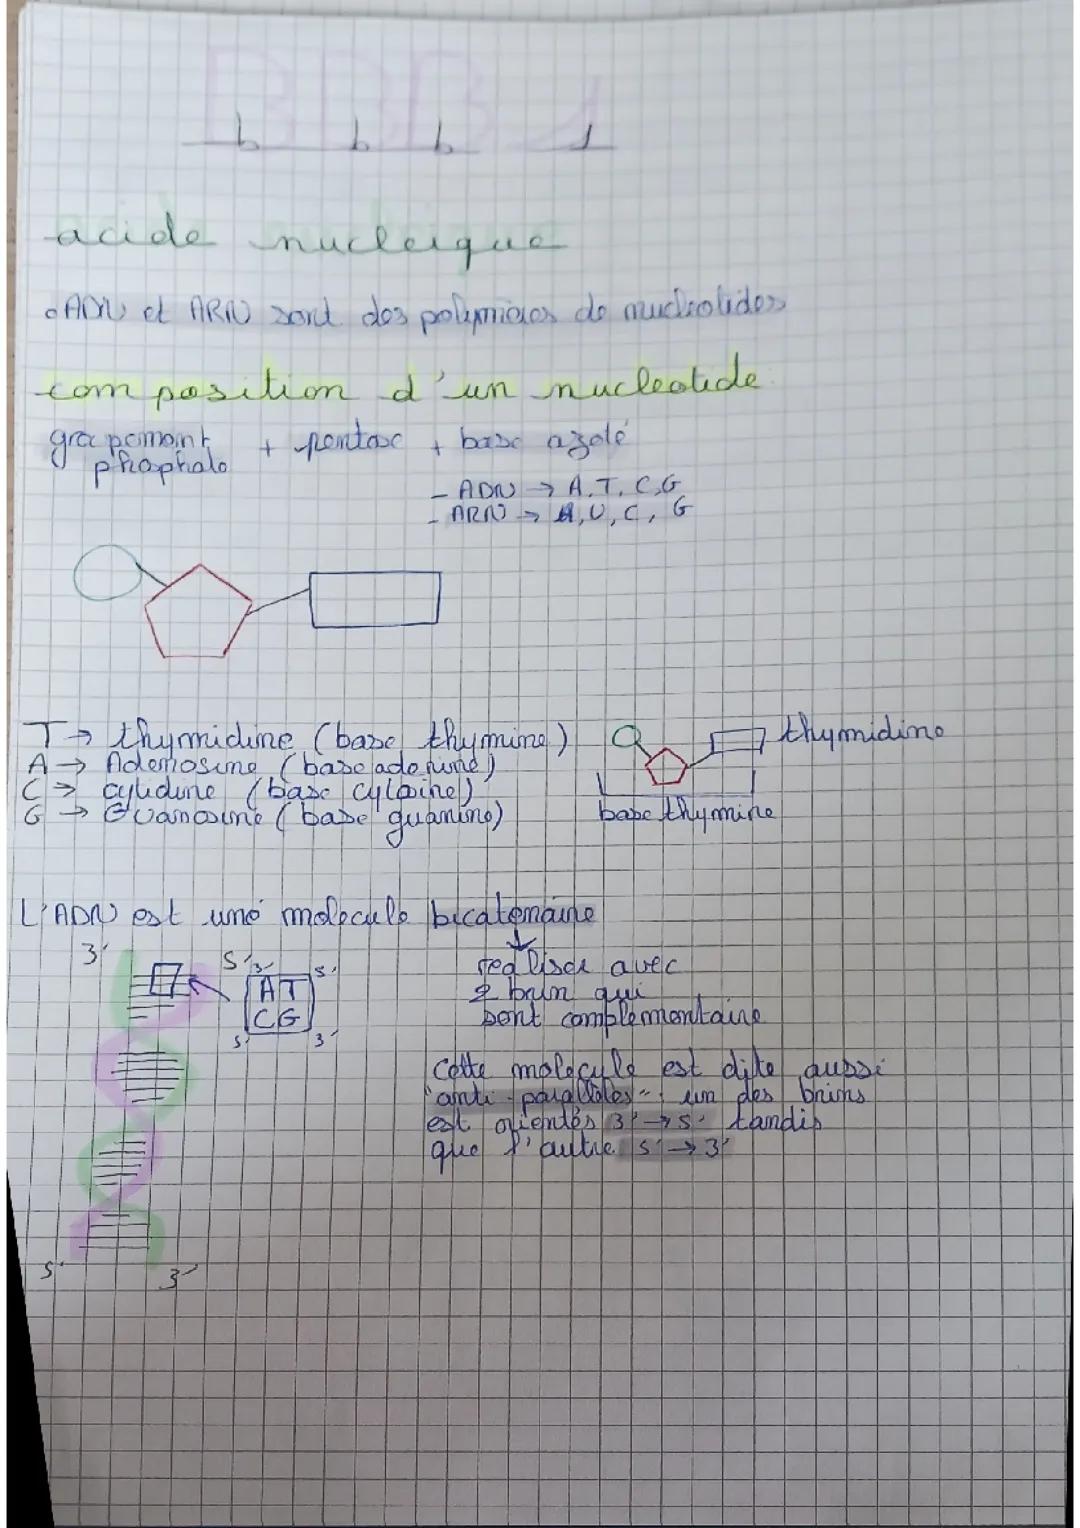 BBB 1
acide nucleique
ADN et ARN sont des polymères de nucleotides
composition d'un nucleotide
groupement phosphate + pentose + base azoté
- ADN → A, T, C, G
- ARN → A, U, C, G
T → thymidine (base thymine)
A → Adenosine (base adenine)
C → cytidine (base cytosine)
G → Guanosine (base guanine)
thymidine
base thymine
L'ADN est une molecule bicatenaine
3' 5'
3' 5'
A T
C G
5' 3'
realiser avec
2 brin qui
sont complementaire
Cette molecule est dite aussi
"anti-parallèles", un des brins
est orientés 3' → 5' tandis
que l'autre 5' → 3'
5' 3'